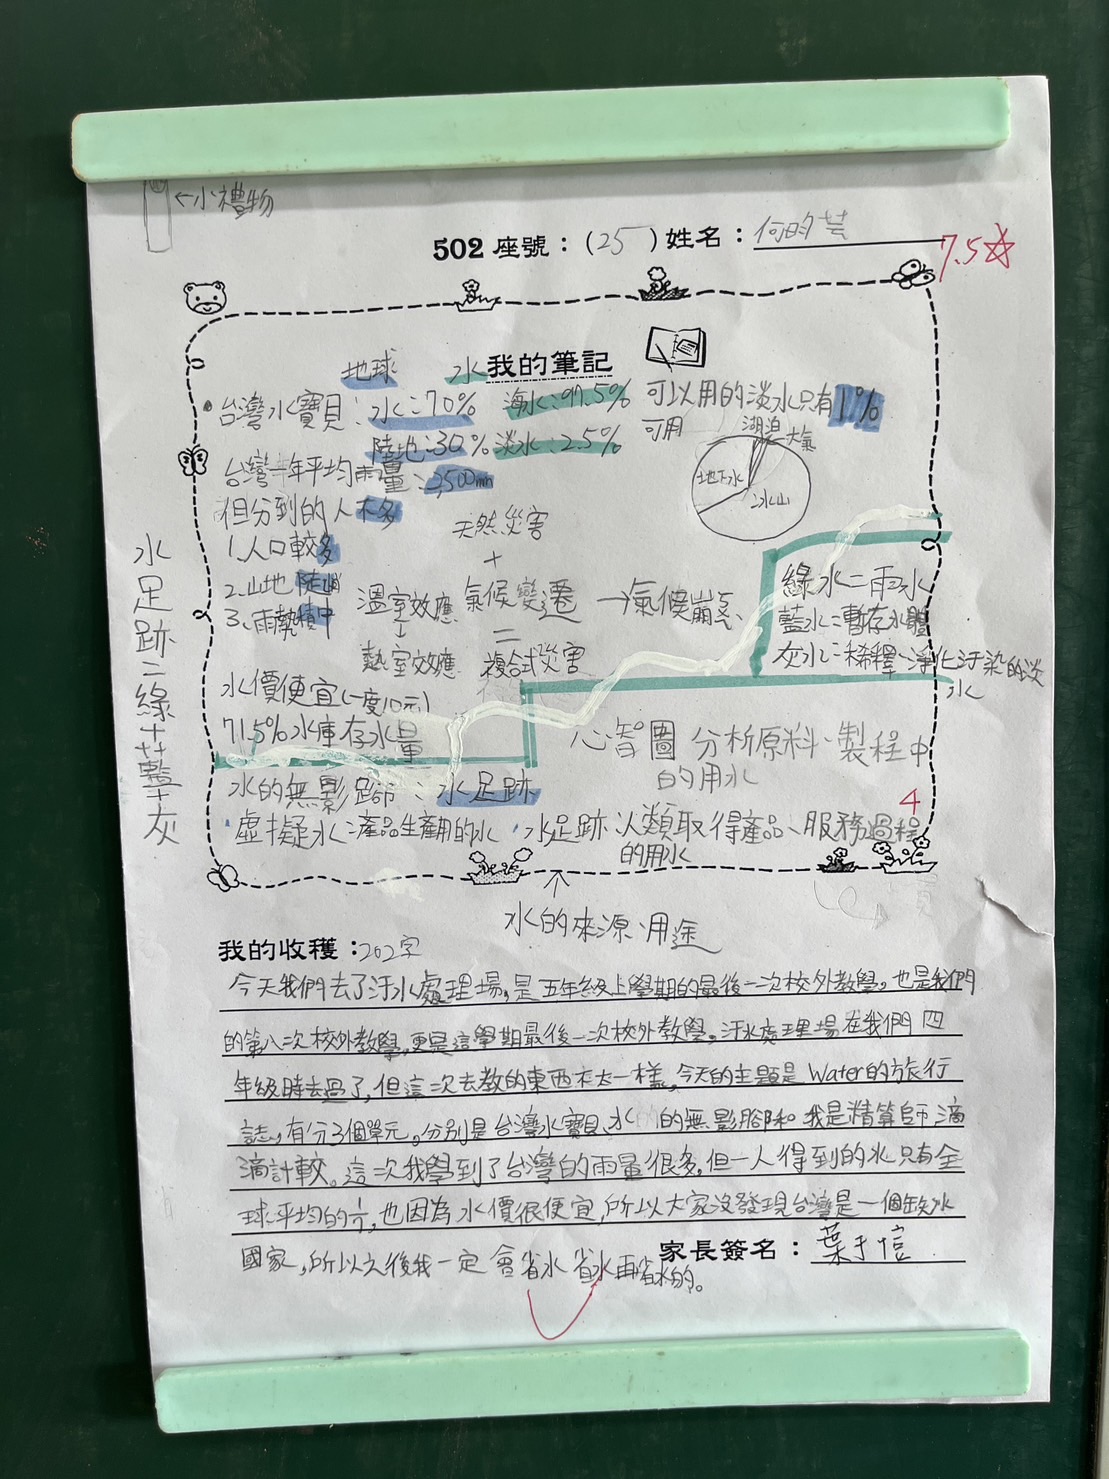 ←小禮物
502 座號：（25）姓名：何昀芸
7.5☆
地球 水 我的筆記
台灣水寶貝：水：70% 海水：97.5% 可以用的淡水只有1%
陸地：30% 淡水：2.5% 可用
湖泊 大氣
地下水 冰山
台灣一年平均雨量：2500mm
但分到的人不多
1.人口較多
2.山地陡峭
3.雨勢集中
天然災害
+
溫室效應 氣候變遷 →氣候崩
=
熱室效應 複合式災害
綠水=雨水
藍水：暫存水體
灰水：稀釋、淨化汙染的淡水
水價便宜(一度10元)
71.5%水庫存水量
心智圖 分析原料、製程中的用水
水的無影腳：水足跡
虛擬水：產品生產用的水
水足跡 人類取得產品、服務過程的用水
4
水足跡=綠+藍+灰
水的來源、用途
我的收穫：202字
今天我們去了汙水處理場，是五年級上學期的最後一次校外教學，也是我們
的第八次校外教學，更是這學期最後一次校外教學。汙水處理場在我們四
年級時去過了，但這次去教的東西不太一樣，今天的主題是Water的旅行
誌，有分3個單元，分別是台灣水寶貝、水的無影腳和我是精算師滴
滴計較。這次我學到了台灣的雨量很多，但一人得到的水只有全
球平均的，也因為水價很便宜，所以大家沒發現台灣是一個缺水
國家，所以之後我一定會省水省水再省水的。
家長簽名：葉于信